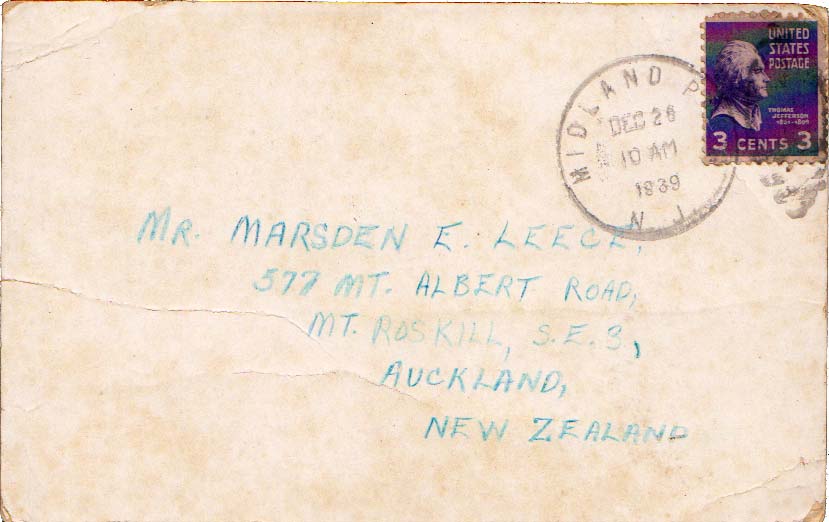 UNITED
STATES
POSTAGE
THOMAS
JEFFERSON
1801-1809
3 CENTS 3
MIDLAND P
DEC 26
10 AM
1939
N. J.
MR. MARSDEN E. LEECE,
577 MT. ALBERT ROAD,
MT. ROSKILL, S.E.3,
AUCKLAND,
NEW ZEALAND